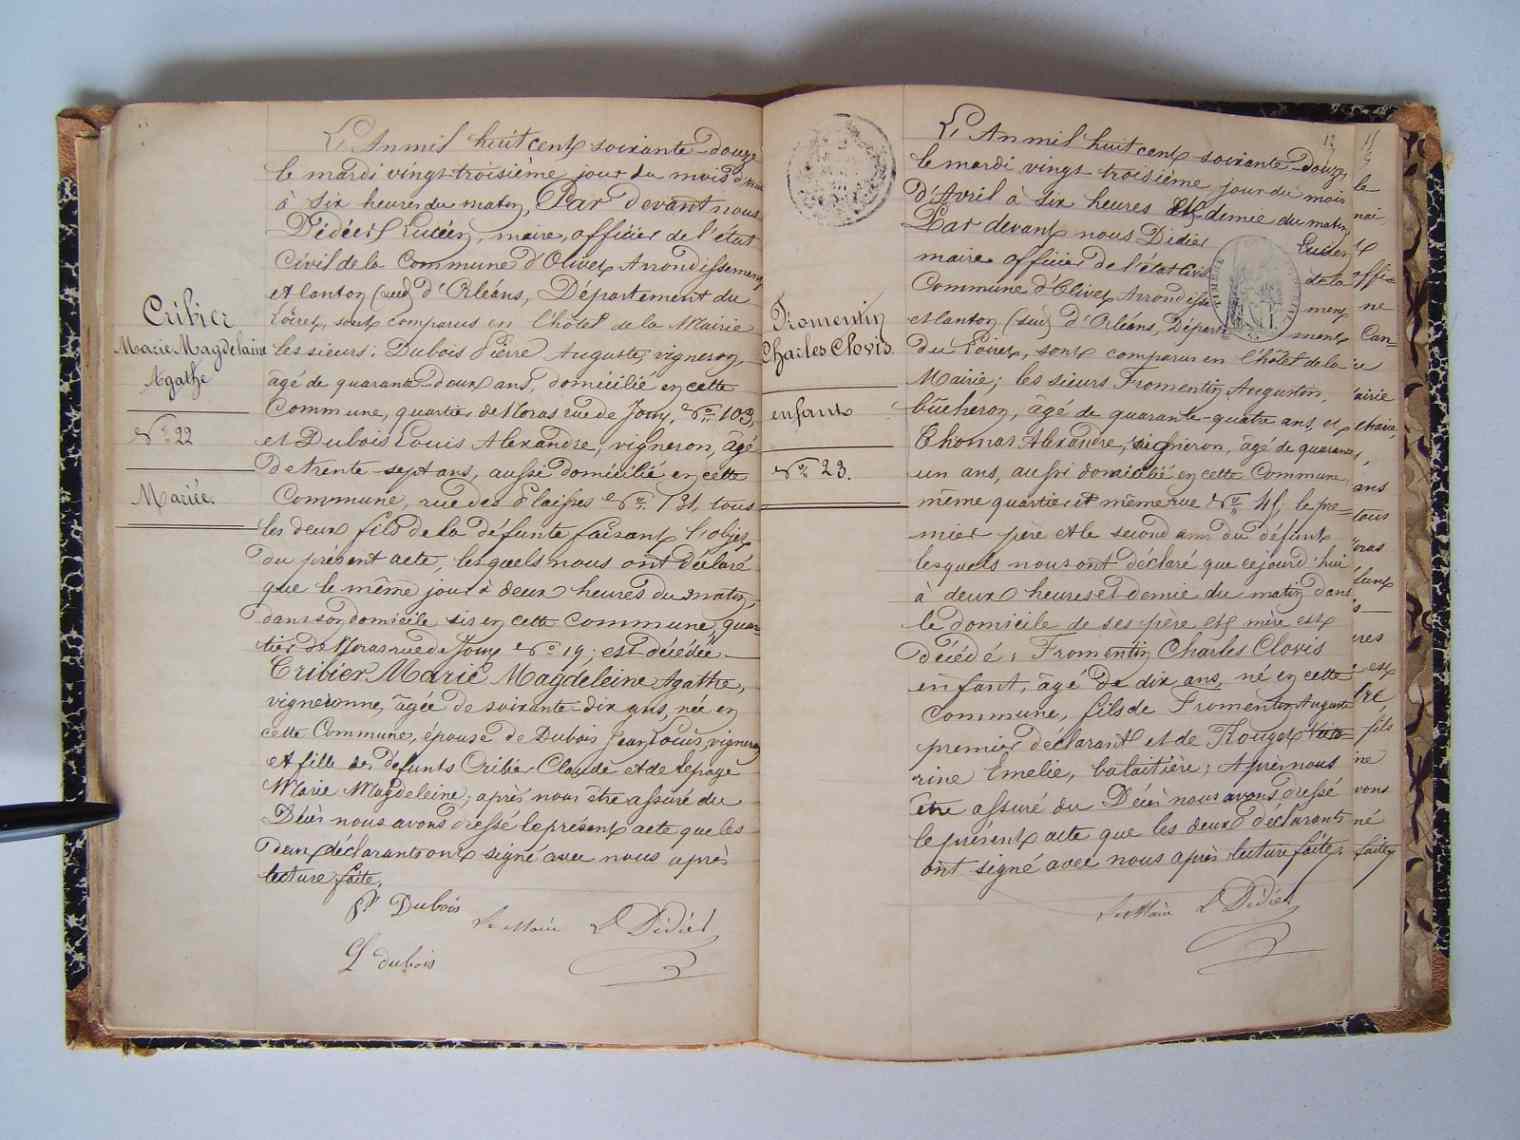 Cribier
Marie Magdelaine
Agathe
N° 22
Mariée.
L'An mil huit cent soixante-douze
le mardi vingt-troisième jour du mois
à six heures du matin, Par Devant nous
Didier Lucien, maire, officier de l'état
Civil de la Commune d'Olivet Arrondissement
et Canton (sud) d'Orléans, Département du
Loiret, sont comparus en l'hôtel de la Mairie
les sieurs: Dubois Pierre Auguste, vigneron,
âgé de quarante-deux ans, domicilié en cette
Commune, quartier de Noras rue de Jouy, N° 103,
et Dubois Louis Alexandre, vigneron, âgé
de trente-sept ans, aussi domicilié en cette
Commune, rue des N° 131, tous
les deux fils de la défunte faisant l'objet
du présent acte, lesquels nous ont déclaré
que le même jour à deux heures du matin,
dans son domicile sis en cette Commune, quar=
tier de Noras rue de Jouy N° 19; est décédée
Cribier Marie Magdeleine Agathe,
vigneronne, âgée de soixante-dix ans, née en
cette Commune, épouse de Dubois Jean Louis, vigneron
et fille des défunts Cribier Claude et de Lepage
Marie Magdeleine; après nous être assuré du
Décès nous avons dressé le présent acte que les
deux déclarants ont signé avec nous après
lecture faite.
Dubois
Le Maire L Didier
L dubois
Fromentin
Charles Clovis
enfant
N° 23.
12
L'An mil huit cent soixante-douze,
le mardi vingt-troisième jour du mois
d'Avril à six heures et demie du matin
Par devant nous Didier Lucien
maire officier de l'état civil de la
Commune d'Olivet Arrondisse ment
et Canton (sud) d'Orléans, Départe ment
du Loiret, sont comparus en l'hôtel de la
Mairie; les sieurs Fromentin Augustin,
bûcheron, âgé de quarante-quatre ans, et
Thomas Alexandre, vigneron, âgé de quarante
un ans, aussi domicilié en cette Commune,
même quartier et même rue N° 45; le pre=
mier père et le second ami du défunt
lesquels nous ont déclaré que cejourd'hui
à deux heures et demie du matin dans
le domicile de ses père et mère est
décédé; Fromentin Charles Clovis
enfant, âgé de dix ans, né en cette
Commune, fils de Fromentin Auguste
premier déclarant et de Rouget
rine Emelie, ; Après nous
être assuré du Décès nous avons dressé
le présent acte que les deux déclarants
ont signé avec nous après lecture faite.
Le Maire L Didier